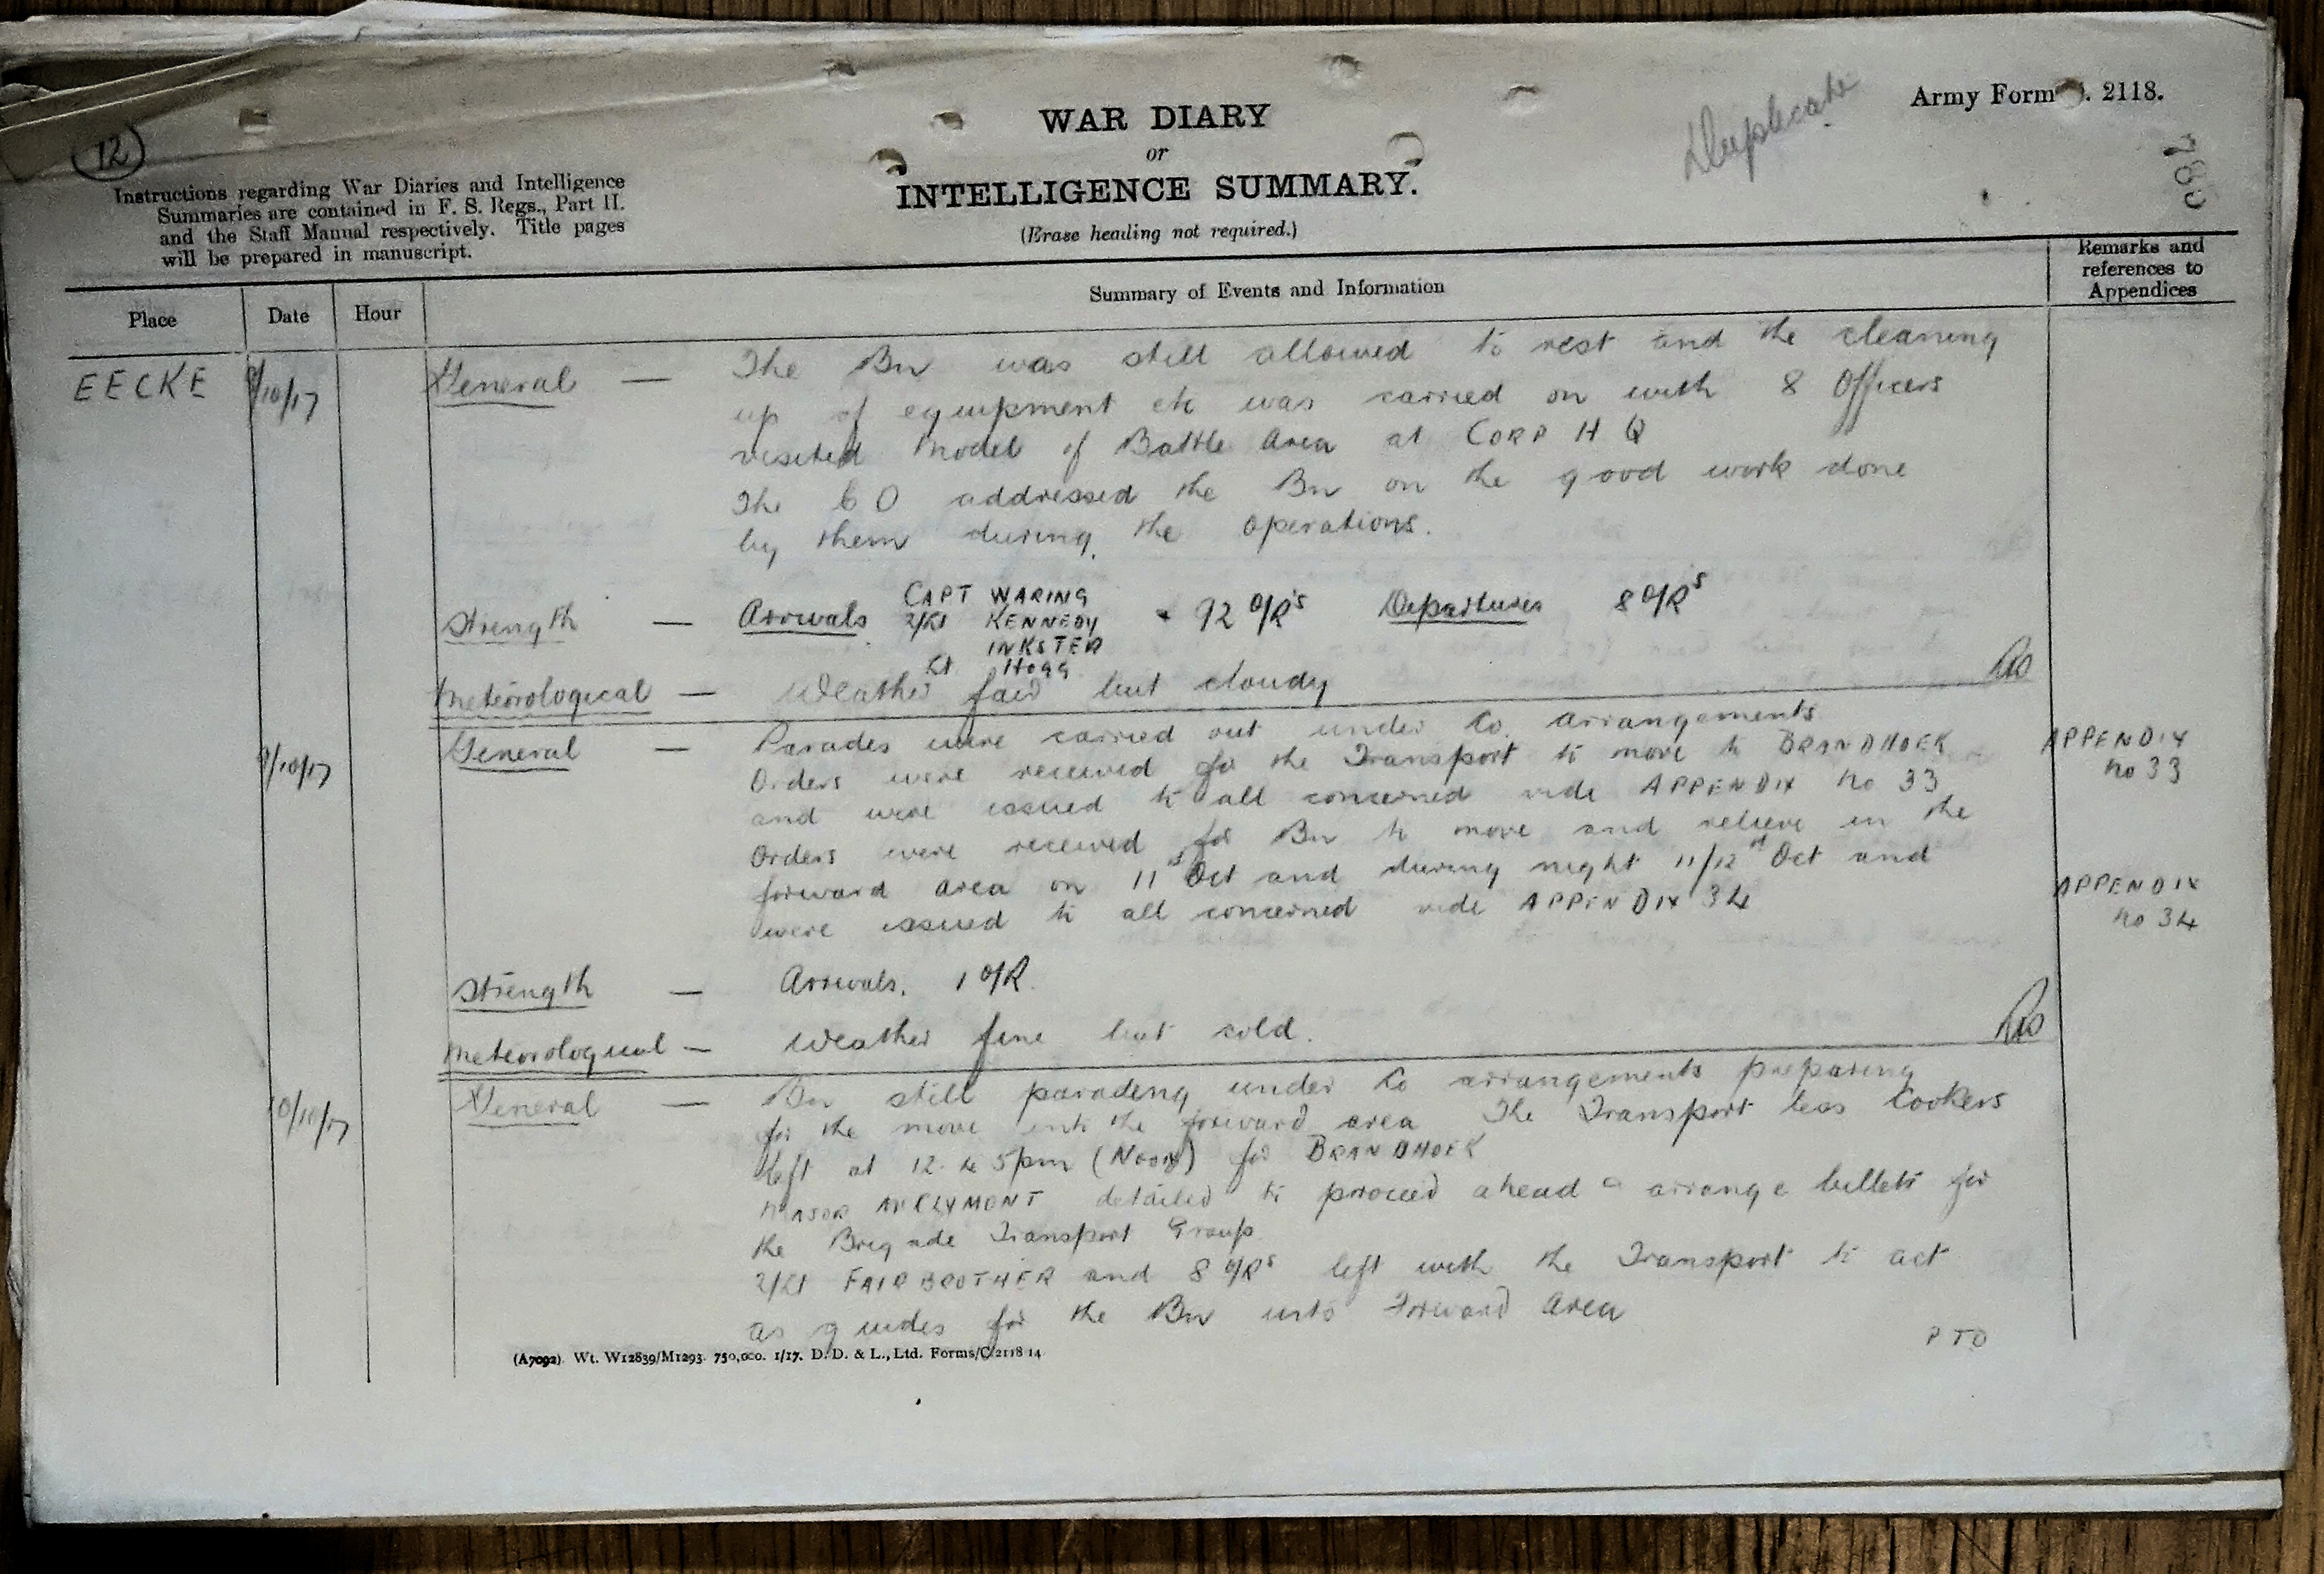 12
Duplicate
Army Form . 2118.
WAR DIARY
or
INTELLIGENCE SUMMARY.
(Erase heading not required.)
Instructions regarding War Diaries and Intelligence
Summaries are contained in F. S. Regs., Part II.
and the Staff Manual respectively. Title pages
will be prepared in manuscript.
Place Date Hour Summary of Events and Information
Remarks and
references to
Appendices
EECKE 8/10/17 General — The Bn was still allowed to rest and the cleaning
up of equipment etc was carried on with 8 Officers
visited Model of Battle Area at CORP H Q
The CO addressed the Bn on the good work done
by them during the operations.
Strength — Arrivals CAPT WARING 92 O/Rs Departures 8 O/Rs
2/Lt KENNEDY
INKSTER
Lt HOGG
Meteorological — Weather fair but cloudy
9/10/17 General — Parades were carried out under Co. arrangements
Orders were received for the Transport to move to BRANDHOEK
and were issued to all concerned vide APPENDIX No 33
APPENDIX
No 33
Orders were received for Bn to move and relieve in the
forward area on 11 Oct and during night 11/12 Oct and
were issued to all concerned vide APPENDIX 34
APPENDIX
No 34
Strength — Arrivals. 1 O/R.
Meteorological — Weather fine but cold.
10/10/17 General — Bn still parading under Co arrangements preparing
for the move into the forward area The Transport less Cookers
left at 12.45pm (Noon) for BRANDHOEK
MAJOR McCLYMONT detailed to proceed ahead arrange billets for
the Brigade Transport Group
2/Lt FAIRBROTHER and 8 O/Rs left with the Transport to act
as guides for the Bn into Forward Area
PTO
(A7092) Wt. W12839/M1293. 750,000. 1/17. D. D. & L., Ltd. Forms/C/2118 14